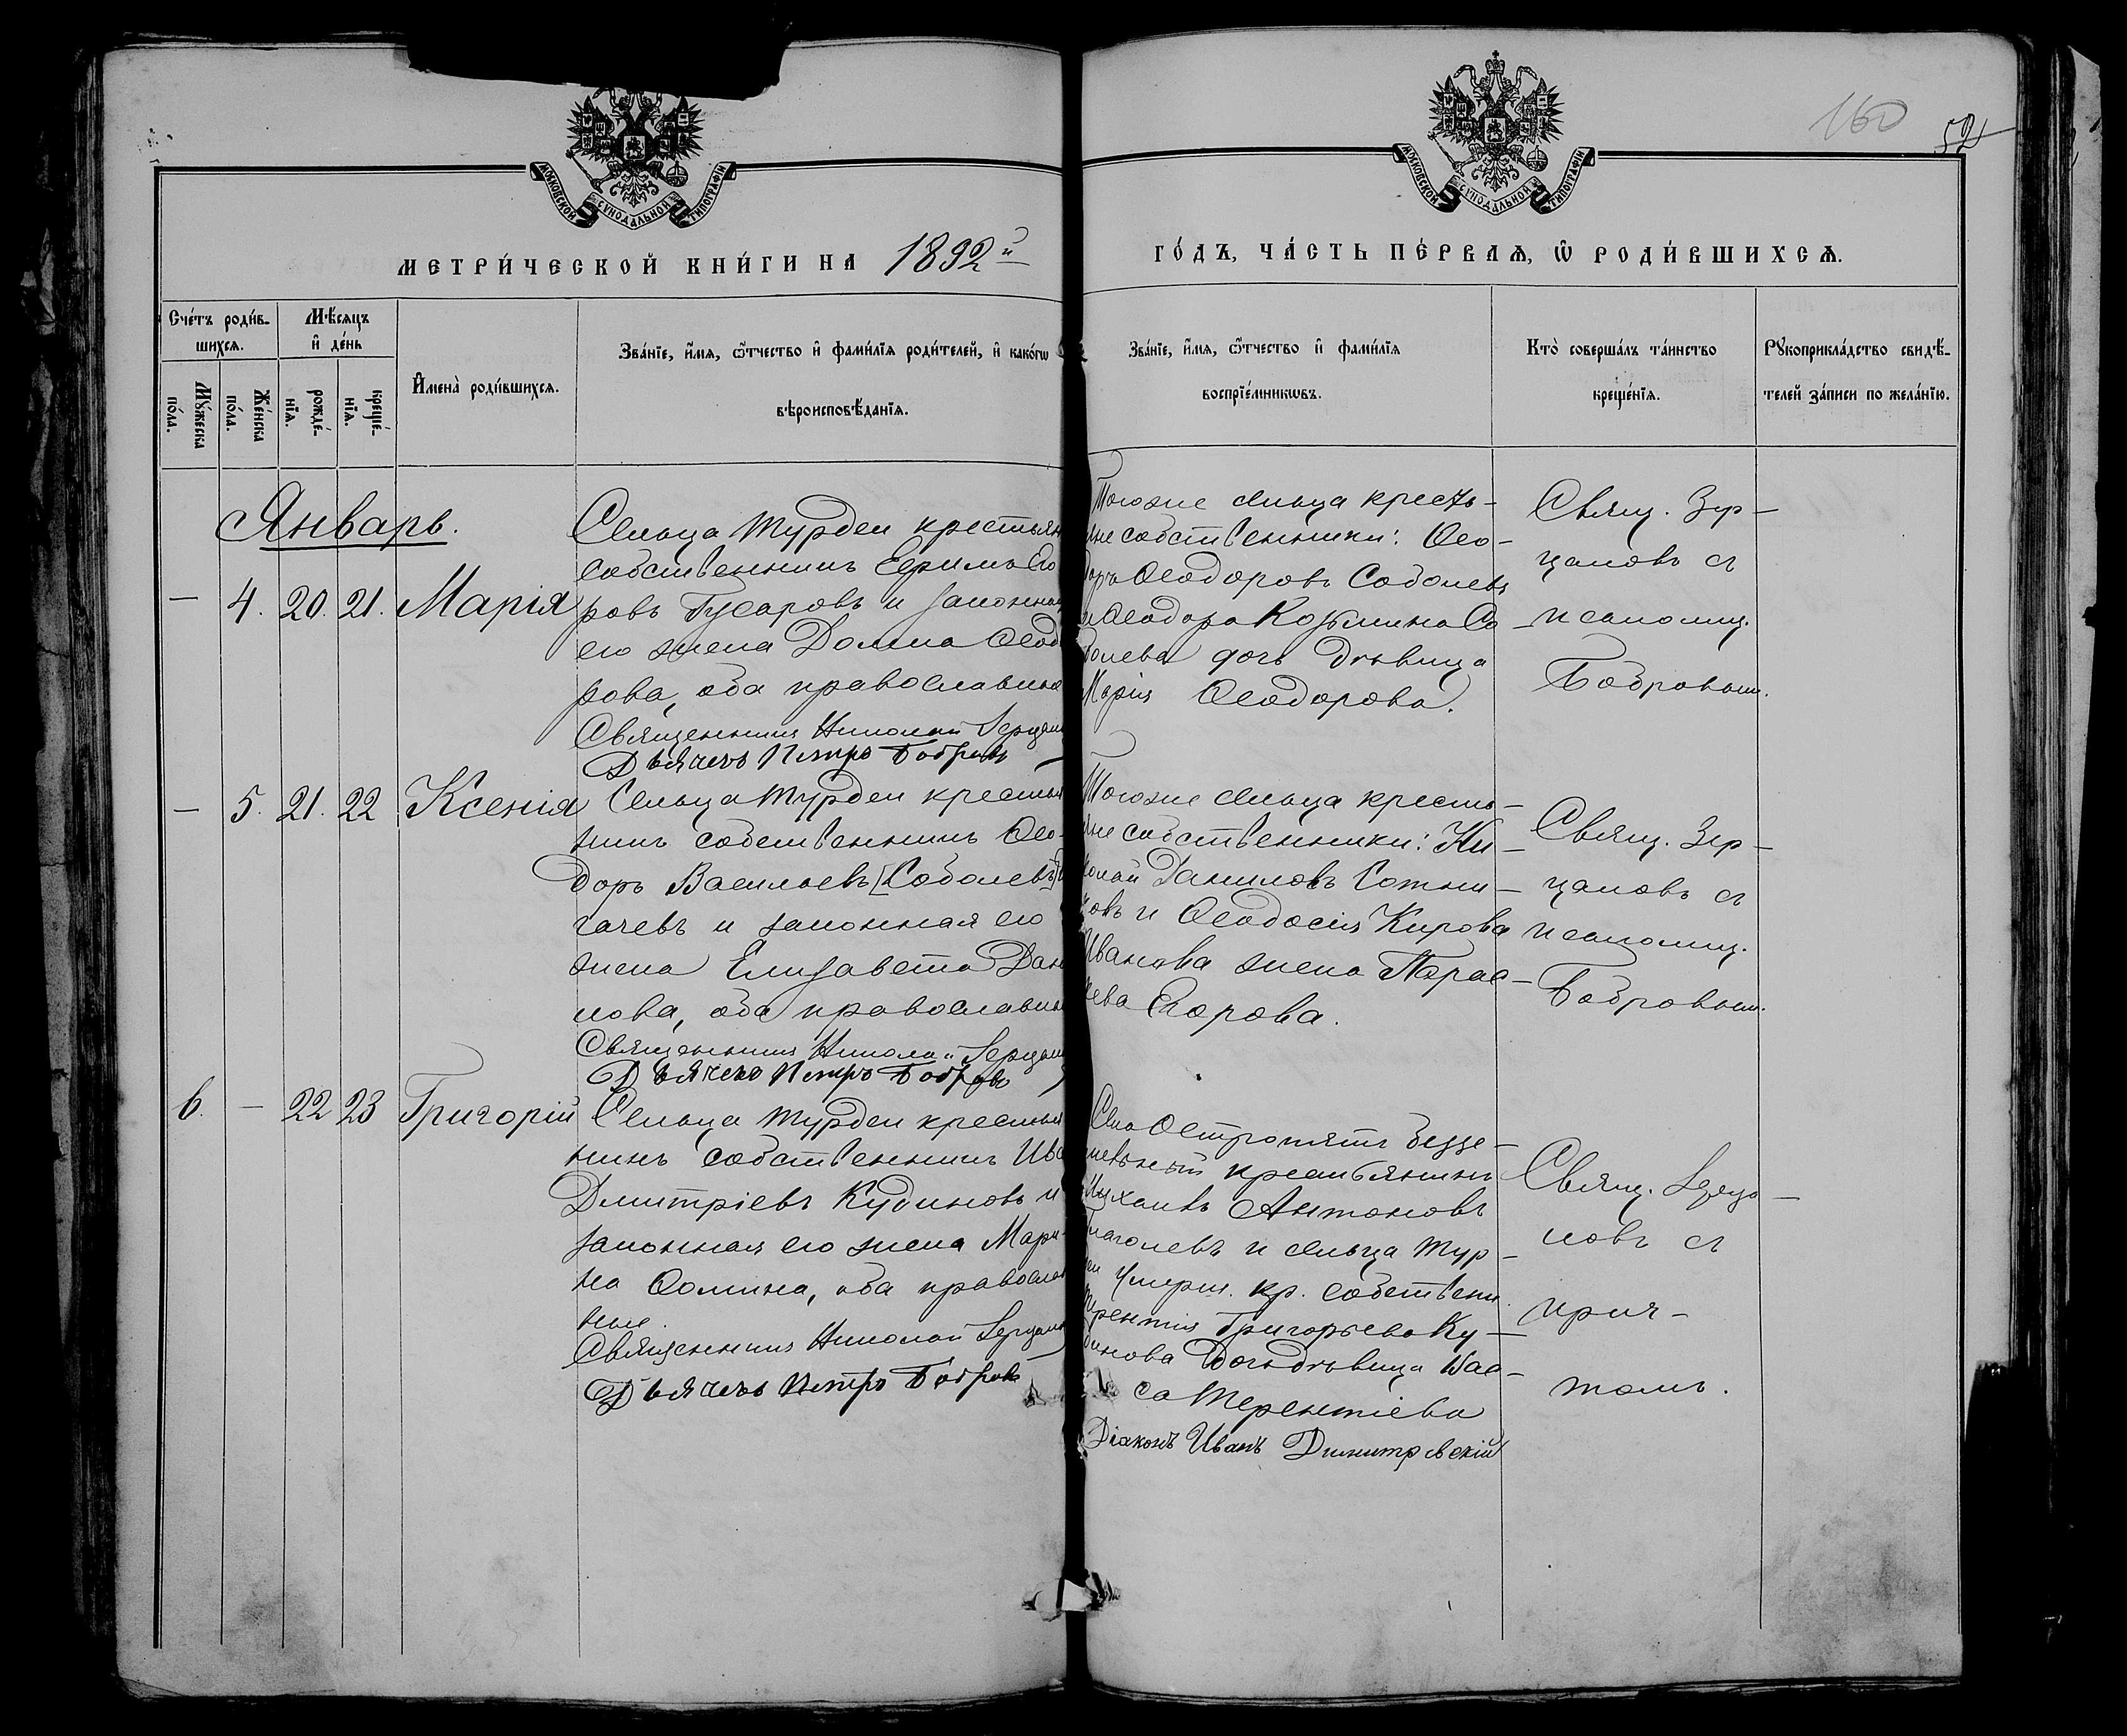 160
52
МОСКОВСКОЙ СѴНОДАЛЬНОЙ ТИПОГРАФІИ
МОСКОВСКОЙ СѴНОДАЛЬНОЙ ТИПОГРАФІИ
МЕТРИ́ЧЕСКОЙ КНИ́ГИ НА 1892й
ГО́ДЪ, ЧА́СТЬ ПЕ́РВАѦ, Ѡ҆ РОДИ́ВШИХСѦ.
Сче́тъ роди́в-
шихсѧ.
Мꙋ́жеска
по́ла.
Же́нска
по́ла.
Мѣ́сѧцъ
и҆ де́нь
рожде́-
нїѧ.
креще́-
нїѧ.
И҆мена̀ роди́вшихсѧ.
Зва́нїе, и҆́мѧ, ѻ҆́тчество и҆ фами́лїѧ роди́телей, и҆ како́гѡ
вѣроисповѣ́данїѧ.
Зва́нїе, и҆́мѧ, ѻ҆́тчество и҆ фами́лїѧ
воспрїе́мникѡвъ.
Кто̀ соверша́лъ та́инство
креще́нїѧ.
Рꙋкоприкла́дство свидѣ́-
телей за́писи по жела́нїю.
Январь.
— 4. 20. 21. Марія
Сельца Турдеи крестьян
собственникъ Ефимъ Его
ровъ Гусаровъ и законная
его жена Домна Ѳеод
рова, оба православные
Священникъ Николай Зерцал
Дьячекъ Петръ Бобровъ
Тогоже сельца кресть-
яне собственники: Ѳео-
доръ Ѳеодоровъ Соболевъ
и Ѳеодора Козьмина Со-
болева дочь дѣвица
Марія Ѳеодорова.
Свящ. Зер-
цаловъ съ
псаломщ.
Бобровым.
— 5. 21. 22 Ксенія
Сельца Турдеи крестья
нинъ собственникъ Ѳео-
доръ Васильевъ [Соболевъ]
гачевъ и законная его
жена Елизавета Дани
лова, оба православные
Священникъ Николай Зерцал
Дьячекъ Петръ Бобровъ
Тогоже сельца кресть-
яне собственники: Ни-
колай Даниловъ Сотни-
ковъ и Ѳеодосія Кирова
Иванова жена Парас-
кева Егорова.
Свящ. Зер-
цаловъ съ
псаломщ.
Бобровым.
6. — 22 23 Григорій
Сельца Турдеи крестья
нинъ собственникъ Ива
Дмитріевъ Кудиновъ и
законная его жена Мари-
на Ѳомина, оба православ
ные.
Священникъ Николай Зерцал
Дьячекъ Петръ Бобровъ
Села Остропятъ безze-
мельный крестьянинъ
Михаилъ Антоновъ
Глаголевъ и сельца Тур-
деи умерш. кр. собствен.
Терентія Григорьева Ку-
динова дочь дѣвица
са Терентіева
Діаконъ Иванъ Димитревскій
Свящ. Зерца-
ловъ съ
прич-
томъ.